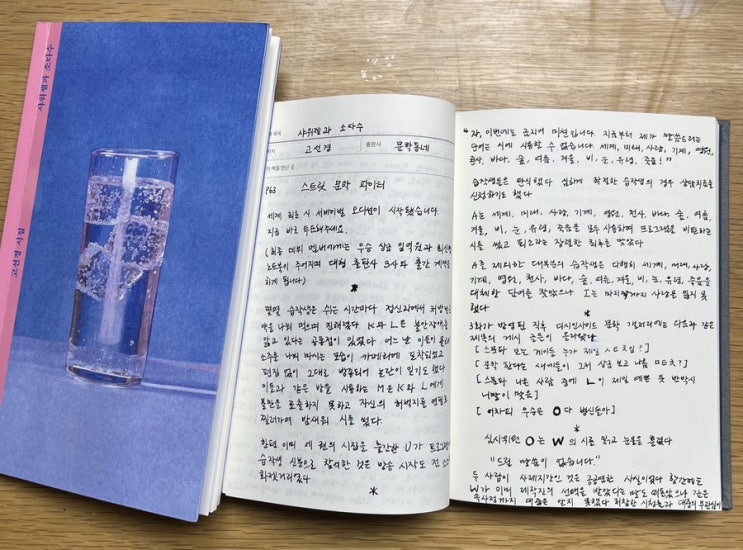 샤워젤과 소다수
고선경 시집
책 제목 샤워젤과 소다수
저자 고선경 출판사 문학동네
이 책을 만난 곳
P63 스트릿 문학 파이터
세계 최초 시 서바이벌 오디션이 시작됐습니다
지금 바로 투표해주세요
(최종 데뷔 멤버에게는 우승 상금 일억원과 최신형
노트북이 주어지며 대형 출판사 3사와 출간 계약을
하게 됩니다)
*
몇몇 습작생은 쉬는 시간마다 정신과에서 처방받은
약을 나눠 먹으며 친해졌다 K와 L은 불안장애를
앓고 있다는 공통점이 있었다 어느 날 이들이 몰래
소주를 나눠 마시는 모습이 카메라에 포착되었고
편집 없이 그대로 방송되어 논란이 일기도 했다
이들과 같은 방을 사용하는 M은 K와 L에게
불만을 표출하지 못하고 자신의 허벅지를 연필로
찔러가며 밤새워 시를 썼다
한편 이미 세 권의 시집을 출간한 U가 프로그램
습작생 신분으로 참여한 것은 방송 시작도 전
화젯거리였다
*
“자, 이번에는 금지어 미션입니다. 지금부터 제가 말씀드리는
단어는 시에 사용할 수 없습니다. 세계, 미래, 사랑, 기계, 영원,
천사, 바다, 숲, 여름, 겨울, 비, 눈, 유령, 죽음!”
습작생들은 탄식했다 심하게 좌절한 습작생의 경우 상담치료를
신청하기도 했다
A는 세계, 미래, 사랑, 기계, 영원, 천사, 바다, 숲, 여름,
겨울, 비, 눈, 유령, 죽음을 모두 사용하며 프로그램을 비판하는
시를 썼고 퇴소라는 장렬한 최후를 맞았다
A를 제외한 대부분의 습작생은 다행히 세계, 미래, 사랑,
기계, 영원, 천사, 바다, 숲, 여름, 겨울, 비, 눈, 유령, 죽음을
대체할 단어를 찾았으나 I는 마지막까지 사랑을 잃지 못
했다
3화가 방영된 직후 디시인사이드 문학 갤러리에는 다음과 같은
제목의 게시 글들이 올라왔다
[스문파 보는 게이들 누가 제일 ㅅㅌㅊ임?]
[문학 한다는 새끼들이 그저 상금 보고 나옴 ㅁㅌㅊ?]
[스문파 나온 사람 중에 L이 제일 예쁜 듯 반박시
니말이 맞음]
[어차피 우승은 O다 병신들아]
*
심사위원 O는 W의 시를 읽고 눈물을 흘렸다
“드릴 말씀이 없습니다.”
두 사람이 사제지간인 것은 공공연한 사실이었다 항간에는
W가 이미 제작진의 선택을 받았다는 말도 떠돌았으나
대중은 알지 못했다 처참한 시청률과 대중의 무관심이